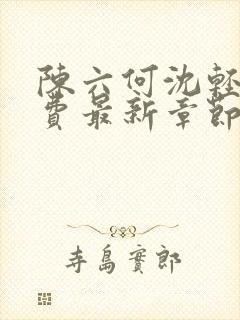 陳六何沈輕
費最新章節
寺島實郎